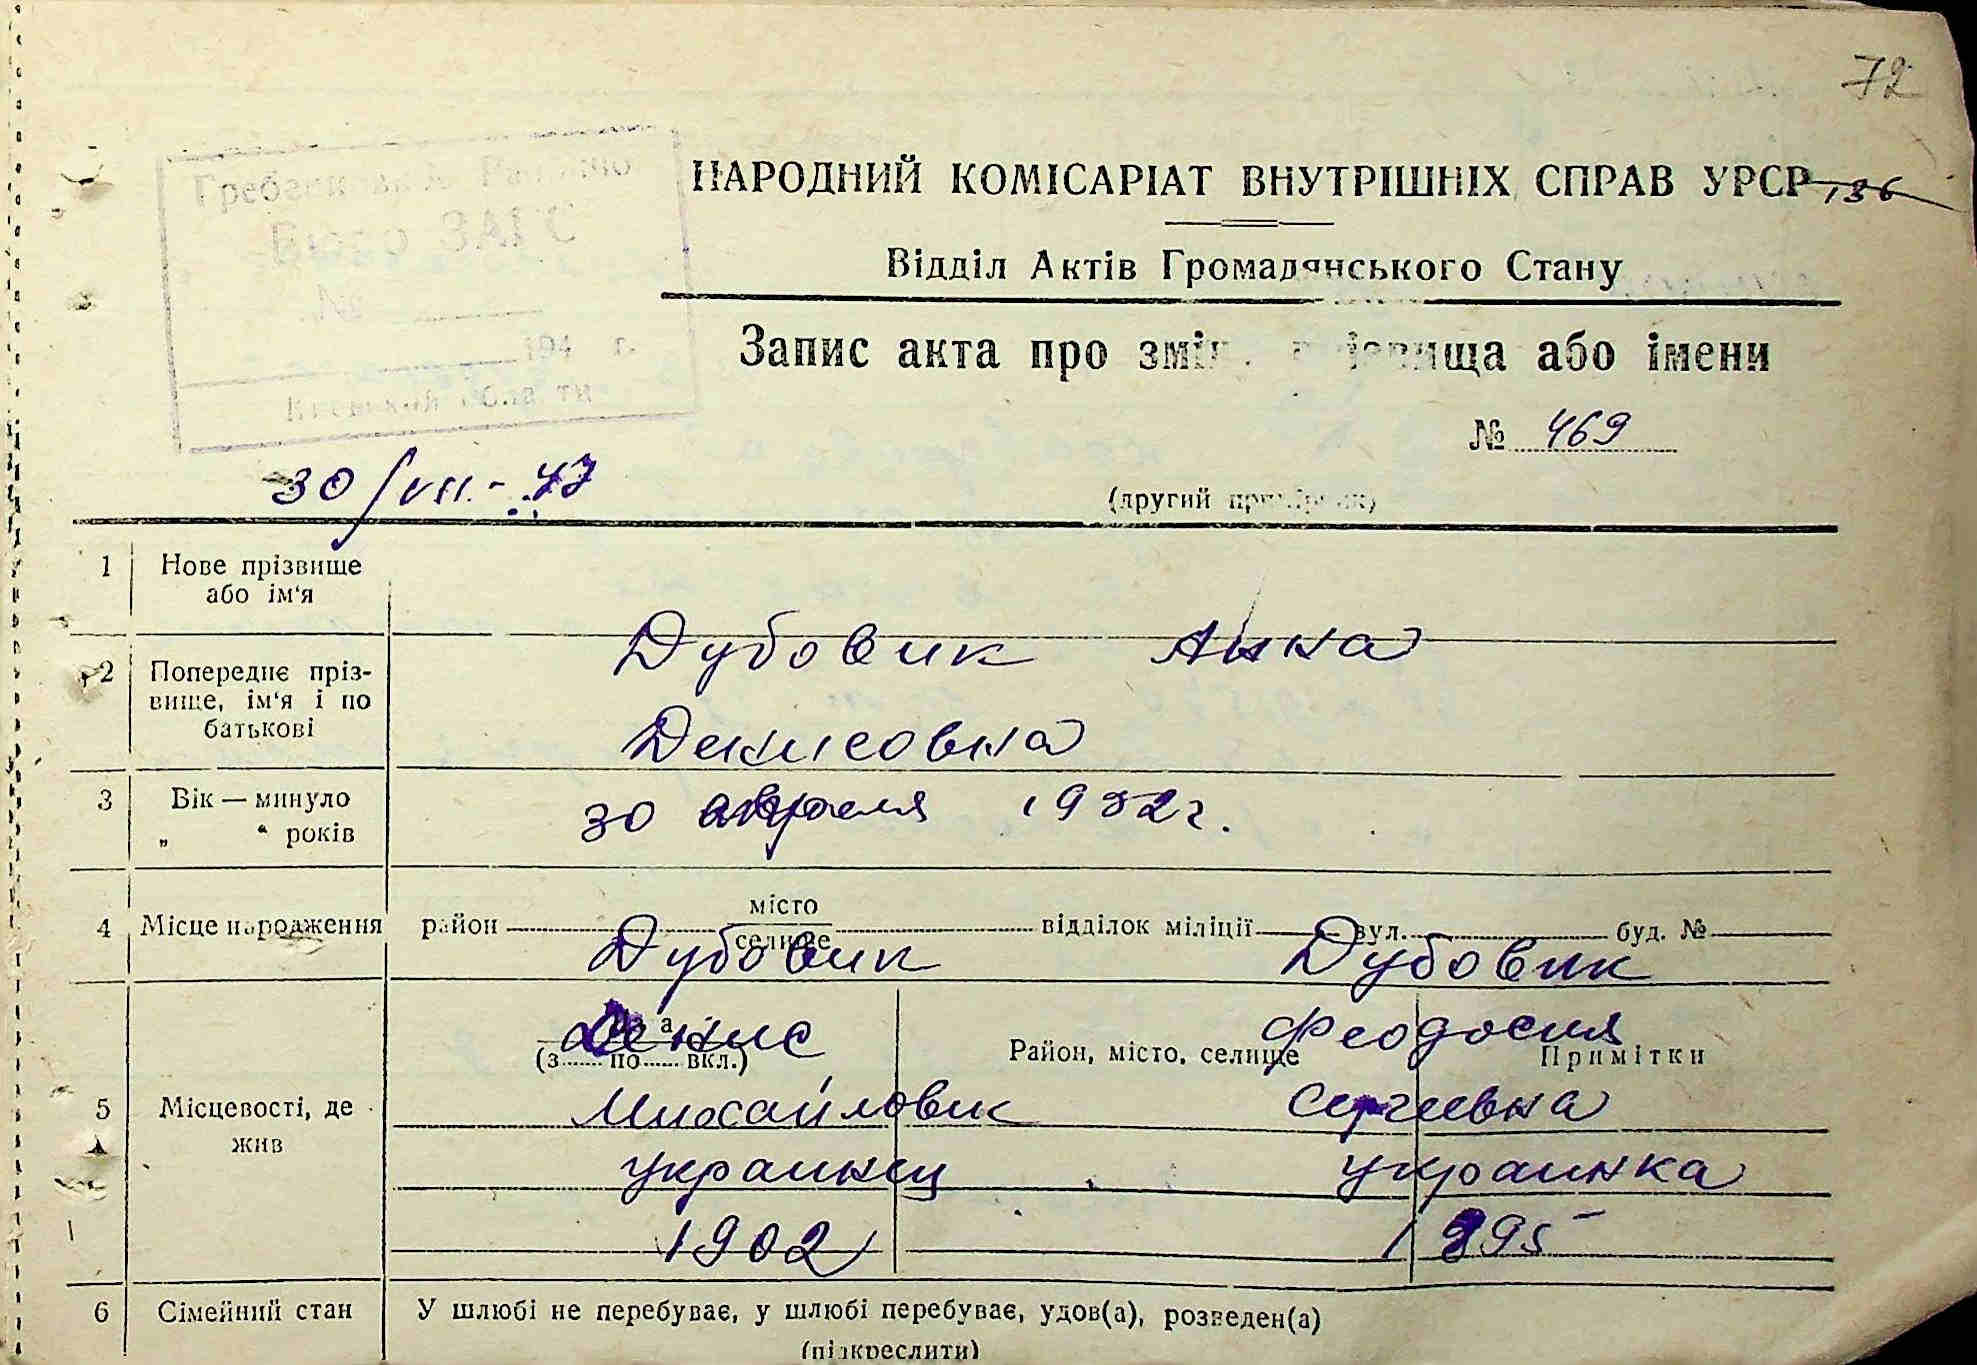 72
Гребенковский
Бюро ЗАГС
№
194 г.
НАРОДНИЙ КОМІСАРІАТ ВНУТРІШНІХ СПРАВ УРСР
136
Відділ Актів Громадянського Стану
Запис акта про зміну прізвища або імени
№ 469
30/VII.-47
(другий примірник)
1 Нове прізвище
або ім'я
Дубовик Анна
2 Попереднє пріз-
вище, ім'я і по
батькові
Денисовна
3 Вік — минуло
„ “ років
30 апреля 1932 г.
4 Місце народження район місто відділок міліції вул. буд. №
селище
Дубовик Дубовик
Денис Феодосия
(з по вкл.) Район, місто, селище Примітки
5 Місцевості, де
жив
Михайлович Сергеевна
украинец украинка
1902 1895
6 Сімейний стан У шлюбі не перебуває, у шлюбі перебуває, удов(а), розведен(а)
(підкреслити)